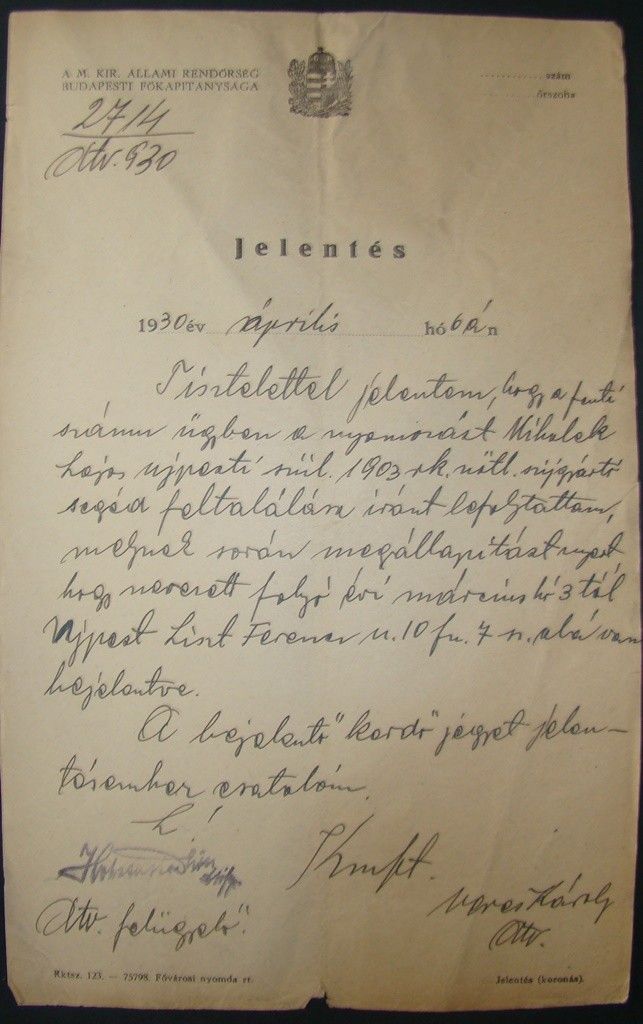 A M. KIR. ÁLLAMI RENDŐRSÉG
BUDAPESTI FŐKAPITÁNYSÁGA
szám
őrszoba
2714
dtv. 930
Jelentés
1930 év április hó 6 án
Tisztelettel jelentem, hogy a fenti
számu ügyben a nyomozást Mihalek
Lajos ujpesti szül. 1903 rk. nőtl. szijgyártó
segéd feltalálása iránt lefolytattam,
melynek során megállapitást nyert
hogy nevezett folyó évi március hó 3 tól
Ujpest Liszt Ferenc u. 10 fu. 7 sz. alá van
bejelentve.
A bejelentő "kérdő" jegyet jelen-
tésemhez csatolom.
L!
Kmft.
Veres Károly
dtv.
dtv. felügyelő.
Rktsz. 123. — 75798. Fővárosi nyomda rt.
Jelentés (koronás).